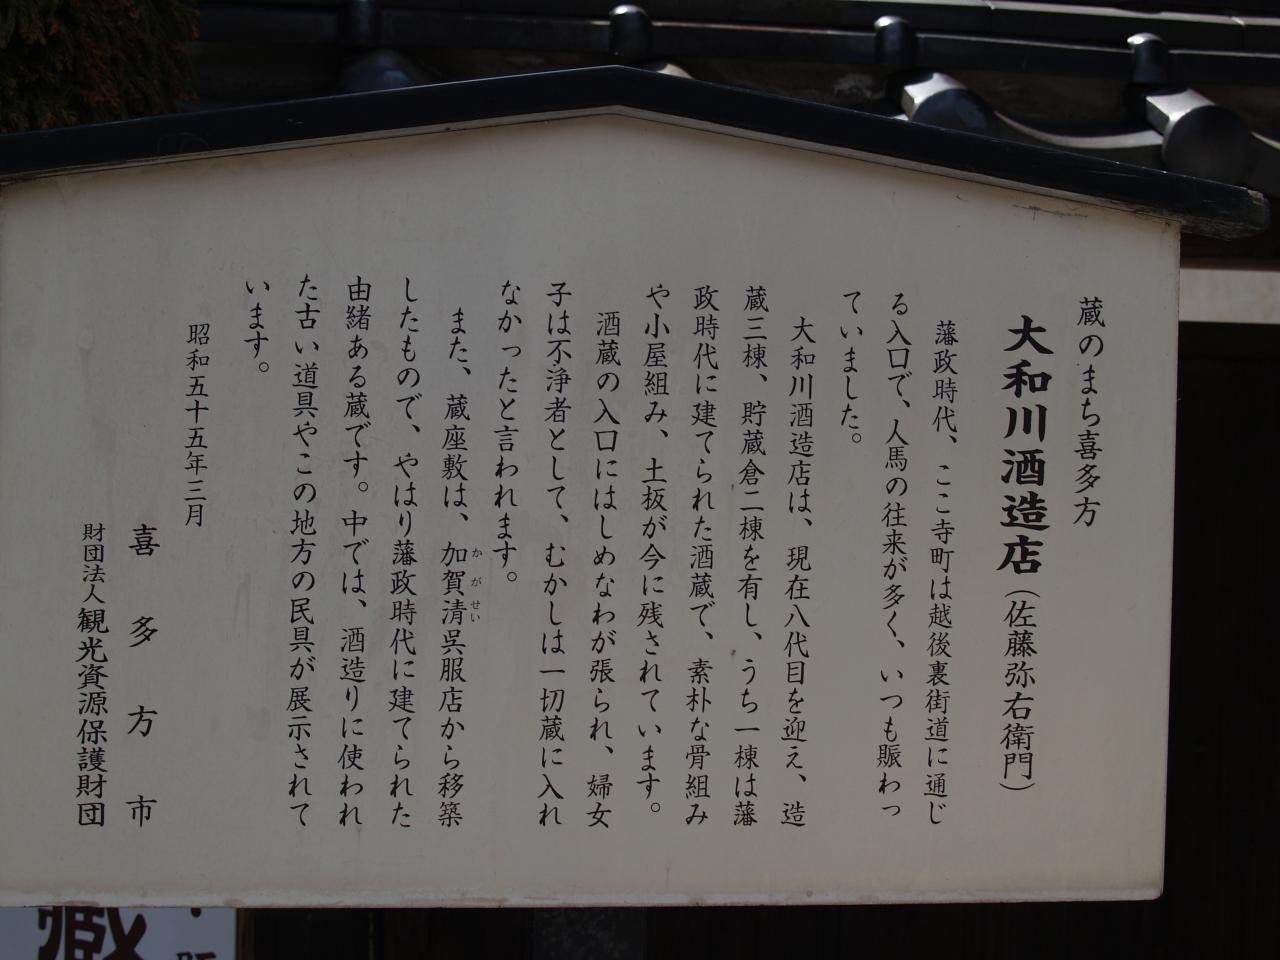 蔵のまち喜多方
大和川酒造店(佐藤弥右衛門)
藩政時代、ここ寺町は越後裏街道に通じ
る入口で、人馬の往来が多く、いつも賑わっ
ていました。
大和川酒造店は、現在八代目を迎え、造
蔵三棟、貯蔵倉二棟を有し、うち一棟は藩
政時代に建てられた酒蔵で、素朴な骨組み
や小屋組み、土板が今に残されています。
酒蔵の入口にはしめなわが張られ、婦女
子は不浄者として、むかしは一切蔵に入れ
なかったと言われます。
また、蔵座敷は、加賀清呉服店から移築
かがせい
したもので、やはり藩政時代に建てられた
由緒ある蔵です。中では、酒造りに使われ
た古い道具やこの地方の民具が展示されて
います。
昭和五十五年三月
喜多方市
財団法人観光資源保護財団
蔵